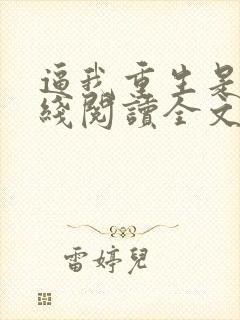 逼我重生是
綫閱讀全文
雷婷兒